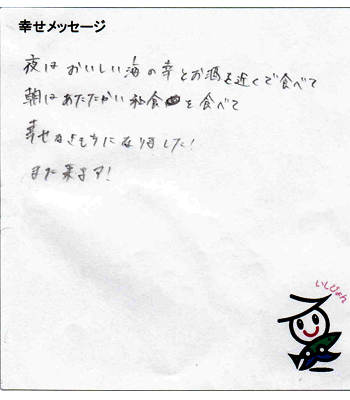 幸せメッセージ
夜は おいしい 海の幸とお酒を近くで食べて
朝は あたたかい 和食を食べて
幸せなきもちになりました!
また来ます!
いしぴょん